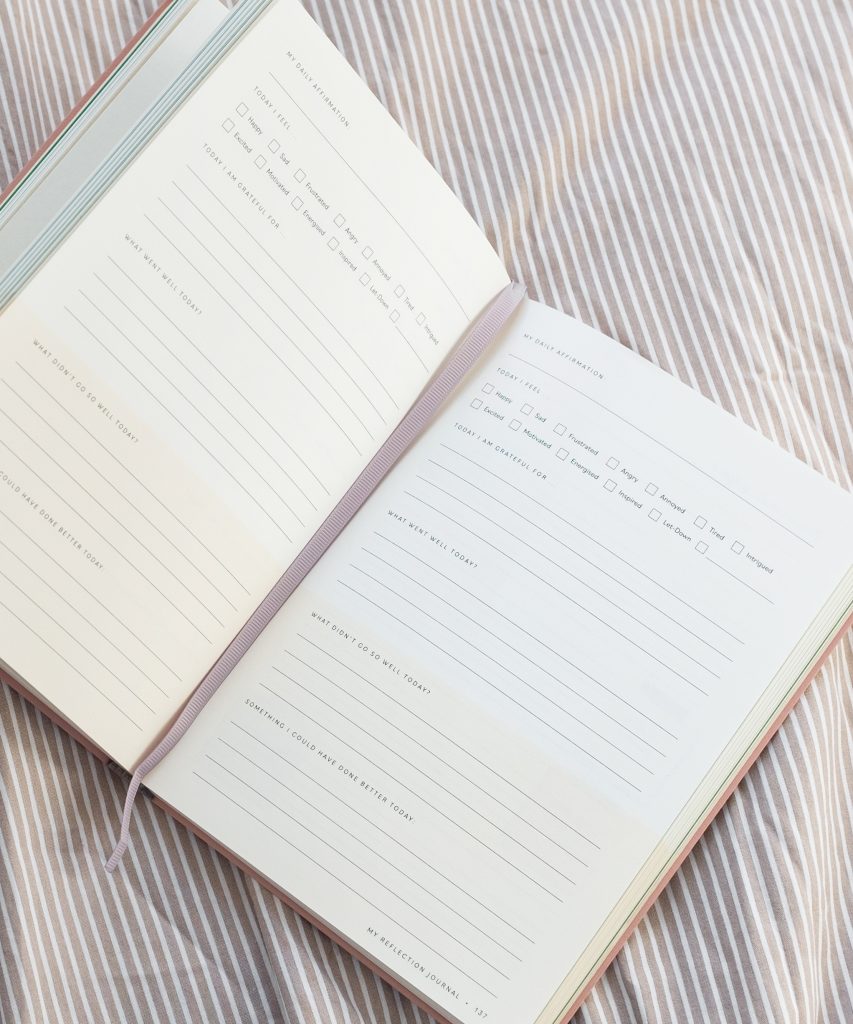 MY DAILY AFFIRMATION
TODAY I FEEL
Happy Sad Frustrated Angry Annoyed Tired Intrigued
Excited Motivated Energised Inspired Let-Down
TODAY I AM GRATEFUL FOR
WHAT WENT WELL TODAY?
WHAT DIDN'T GO SO WELL TODAY?
COULD HAVE DONE BETTER TODAY:
MY DAILY AFFIRMATION
TODAY I FEEL
Happy Sad Frustrated Angry Annoyed Tired Intrigued
Excited Motivated Energised Inspired Let-Down
TODAY I AM GRATEFUL FOR
WHAT WENT WELL TODAY?
WHAT DIDN'T GO SO WELL TODAY?
SOMETHING I COULD HAVE DONE BETTER TODAY:
MY REFLECTION JOURNAL • 137